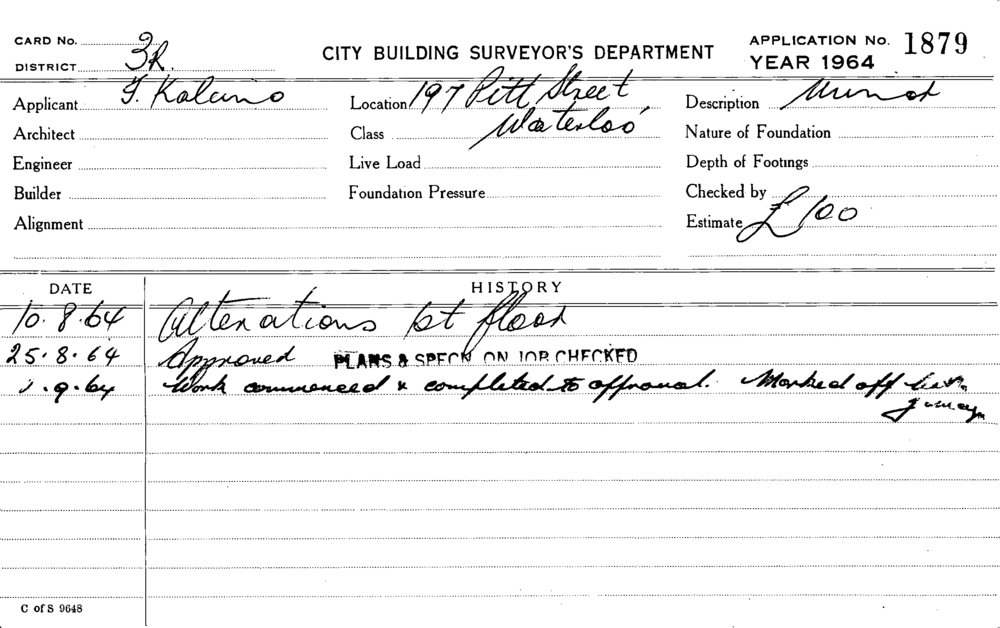 CARD No. 3R
CITY BUILDING SURVEYOR'S DEPARTMENT
APPLICATION No. 1879
DISTRICT
YEAR 1964
Applicant
Location 197 Pitt Street
Description Minor
Architect
Class Waterloo
Nature of Foundation
Engineer
Live Load
Depth of Footings
Builder
Foundation Pressure
Checked by
Alignment
Estimate £100
DATE
HISTORY
10.8.64 Alterations 1st floor
25.8.64 Approved PLANS & SPECN ON JOB CHECKED
.9.64 Work commenced & completed to approval. Marked off
C of S 9648